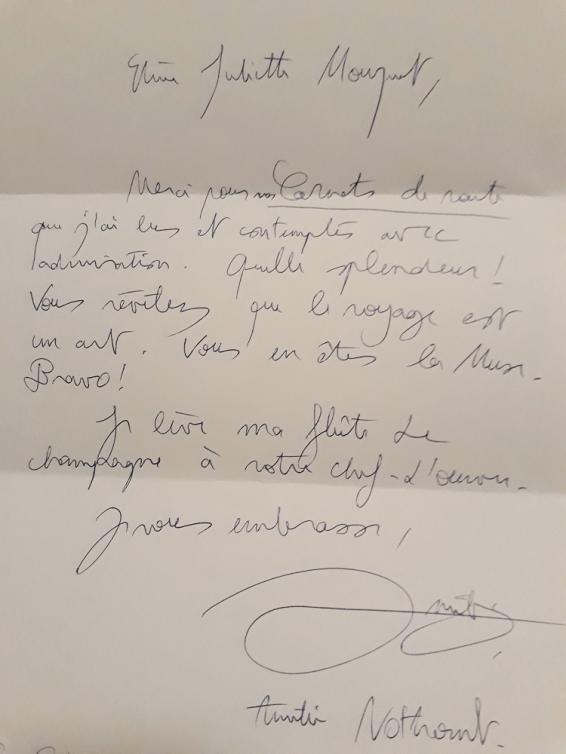 Chère Juliette Mouquet,
Merci pour vos Carnets de route
que j'ai lus et contemplés avec
admiration. Quelle splendeur !
Vous révélez que le voyage est
un art. Vous en êtes la Muse.
Bravo !
Je lève ma flûte de
champagne à votre chef-d'œuvre.
Je vous embrasse,
Amélie
Amélie Nothomb.